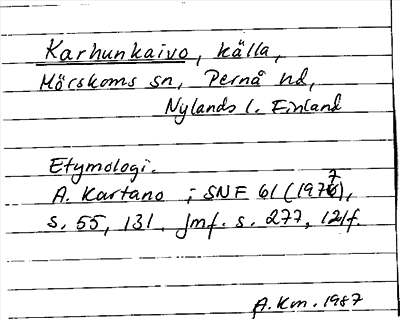 Karhunkaivo, källa,
Mörskoms sn, Pernå hd,
Nylands l. Finland
Etymologi.
A. Kartano i SNF 61 (1977),
s. 55, 131. Jmf. s. 277, 121f.
A.Km. 1987